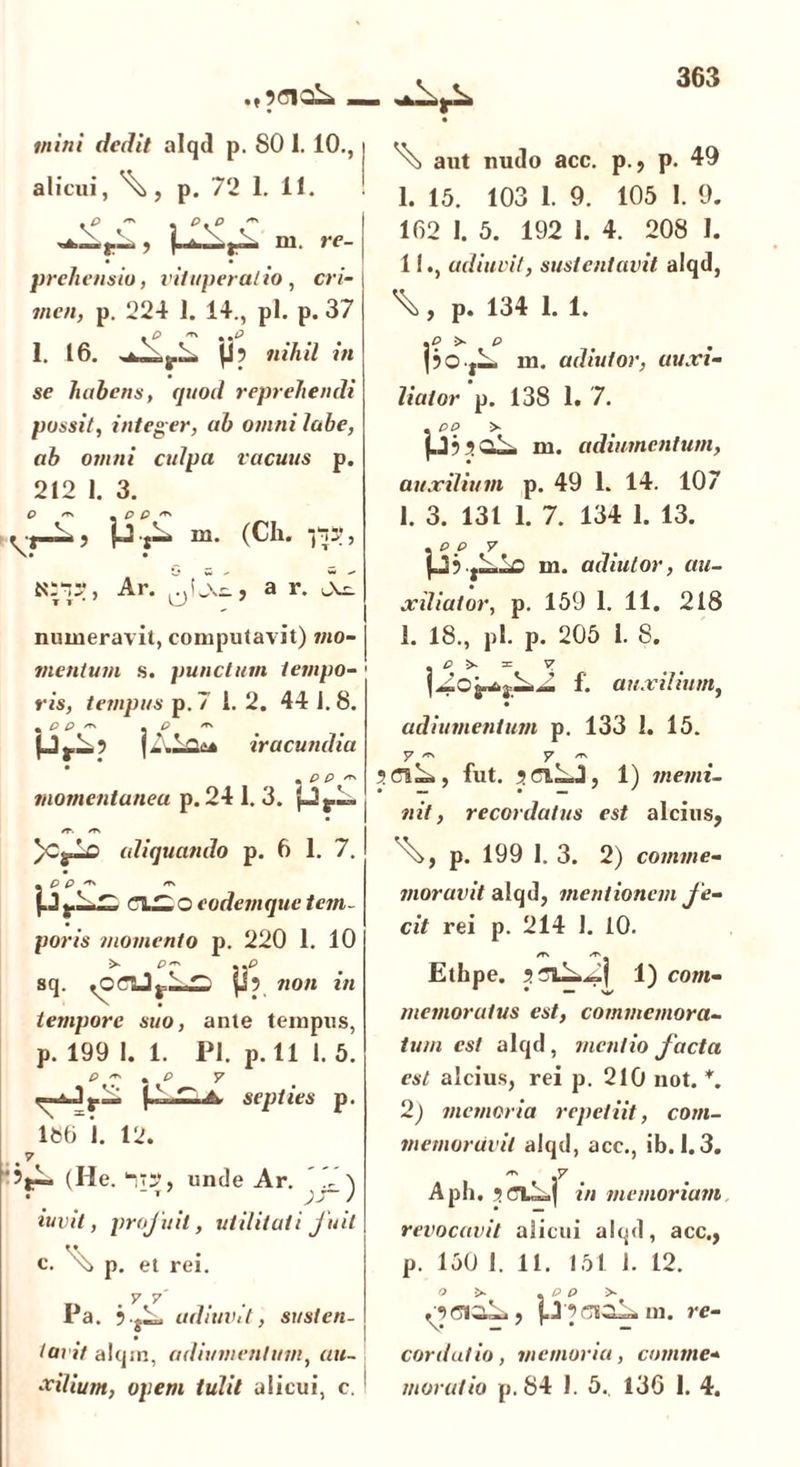 ܥܕܠܝ — ܥܘܗܕܢ 363
mini dedit alqd p. 80 l. 10.,
alicui, ܠ, p. 72 l. 11.
ܥܕܠܝ, ܥܕܠܝܐ m. re-
prehensio, vituperatio, cri-
men, p. 224 l. 14., pl. p. 37
l. 16. ܕܠܐ ܥܕܠܝ nihil in
se habens, quod reprehendi
possit, integer, ab omni labe,
ab omni culpa vacuus p.
212 l. 3.
ܥܕܢ, ܥܕܢܐ m. (Ch. עִדָּן,
עִדָּנָא, Ar. عِدَّانٌ, a r. عَدَّ
numeravit, computavit) mo-
mentum s. punctum tempo-
ris, tempus p. 7 l. 2. 44 l. 8.
ܚܡܬܐ ܕܥܕܢܐ iracundia
momentanea p. 24 l. 3. ܥܕܢܐ
ܡܕܡ aliquando p. 6 l. 7.
ܘܒܗ ܒܥܕܢܐ eodemque tem-
poris momento p. 220 l. 10
sq. ܕܠܐ ܒܥܕܢܗܘܢ non in
tempore suo, ante tempus,
p. 199 l. 1. Pl. p. 11 l. 5.
ܫܒܥܐ ܥܕܢܝܢ septies p.
186 l. 12.
ܥܕܪ (He. עָזַר, unde Ar. عَزَرَ)
iuvit, profuit, utilitati fuit
c. ܠ p. et rei.
Pa. ܥܕܪ adiuvit, susten-
tavit alqm, adiumentum, au-
xilium, opem tulit alicui, c.
ܠ aut nudo acc. p., p. 49
l. 15. 103 l. 9. 105 l. 9.
162 l. 5. 192 l. 4. 208 l.
11., adiuvit, sustentavit alqd,
ܠ, p. 134 l. 1.
ܥܕܘܪܐ m. adiutor, auxi-
liator p. 138 l. 7.
ܥܘܕܪܢܐ m. adiumentum,
auxilium p. 49 l. 14. 107
l. 3. 131 l. 7. 134 l. 13.
ܡܥܕܪܢܐ m. adiutor, au-
xiliator, p. 159 l. 11. 218
l. 18., pl. p. 205 l. 8.
ܬܥܕܝܪܘܬܐ f. auxilium,
adiumentum p. 133 l. 15.
ܥܗܕ, fut. ܢܥܗܕ, 1) memi-
nit, recordatus est alcius,
ܠ, p. 199 l. 3. 2) comme-
moravit alqd, mentionem fe-
cit rei p. 214 l. 10.
Ethpe. ܐܬܥܗܕ 1) com-
memoratus est, commemora-
tum est alqd, mentio facta
est alcius, rei p. 210 not. *.
2) memoria repetiit, com-
memoravit alqd, acc., ib. l. 3.
Aph. ܐܥܗܕ in memoriam
revocavit alicui alqd, acc.,
p. 150 l. 11. 151 l. 12.
ܥܘܗܕܢ, ܥܘܗܕܢܐ m. re-
cordatio, memoria, comme-
moratio p. 84 l. 5. 136 l. 4.